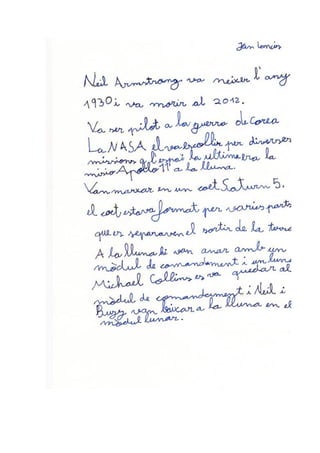 Jan
Neil Armstrang va neixer l'any
1930 i va morir al 2012.
Va ser pilot a la guerra de Corea
La NASA el va escollir per diverses
missions a l'espai la última era la
misio Apollo 11 a la lluna.
Van marxar en un coet Saturn 5.
el coet estava format per varies parts
que es separaven al sortir de la terra
A la lluna hi van anar amb un
mòdul de comandament i un
Michael Collins es va quedar al
mòdul de comandament i Neil i
Buzz van baixar a la lluna en el
mòdul lunar.